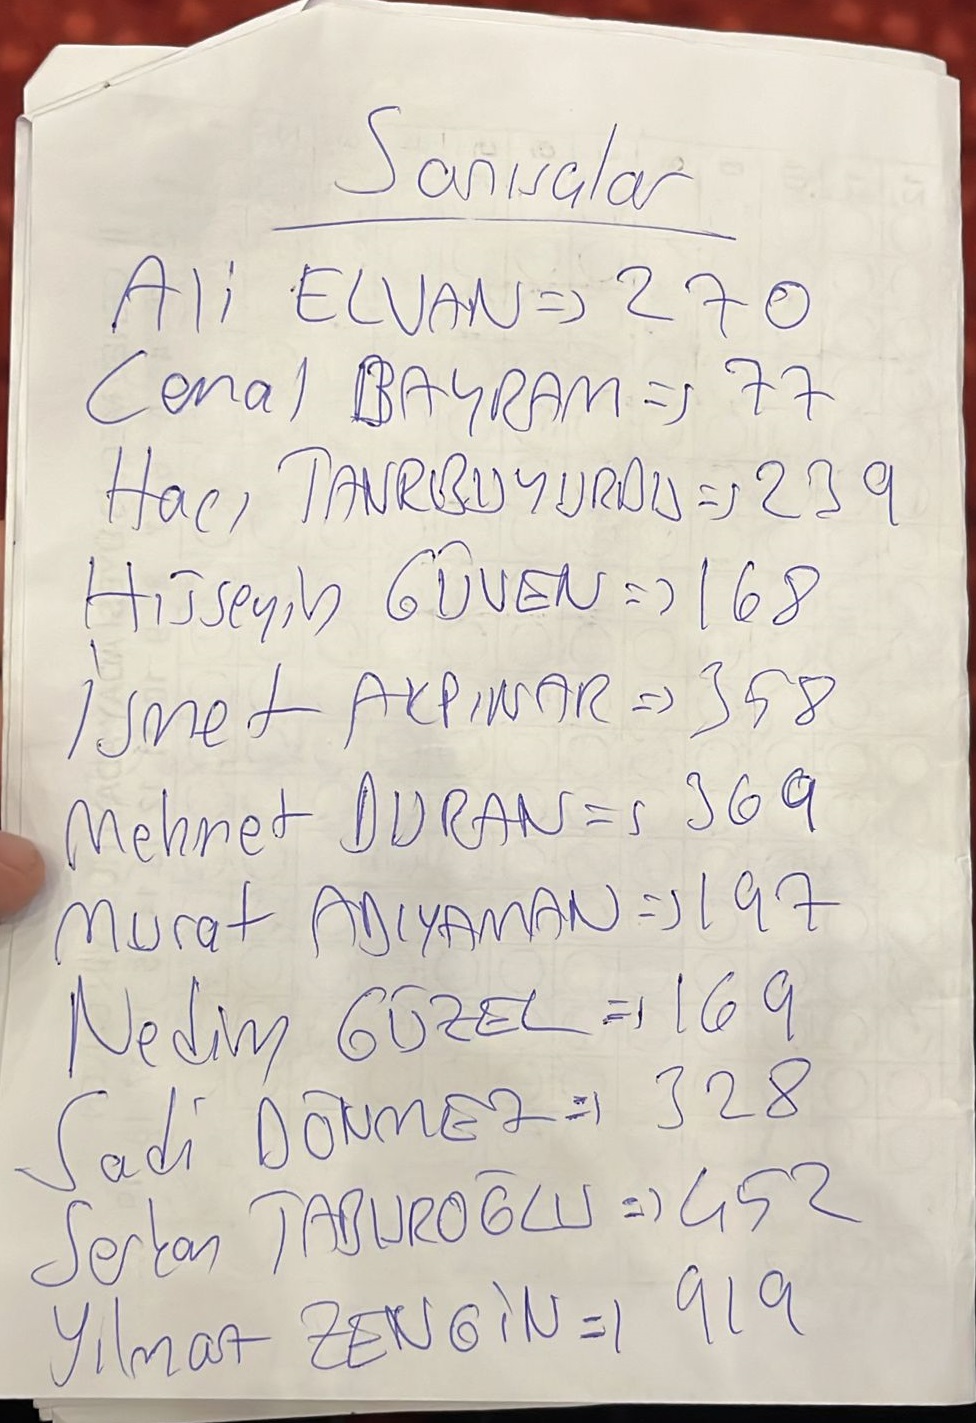 Sarıvalar
Ali ELVAN => 270
Cemal BAYRAM => 77
Hacı TANRIBUYURDU => 239
Hüseyin GÜVEN => 168
İsmet AKPINAR => 358
Mehmet DURAN => 369
Murat ADIYAMAN => 197
Nedim GÜZEL => 169
Sadi DÖNMEZ => 328
Serkan TABUROĞLU => 452
Yılmaz ZENGİN => 919